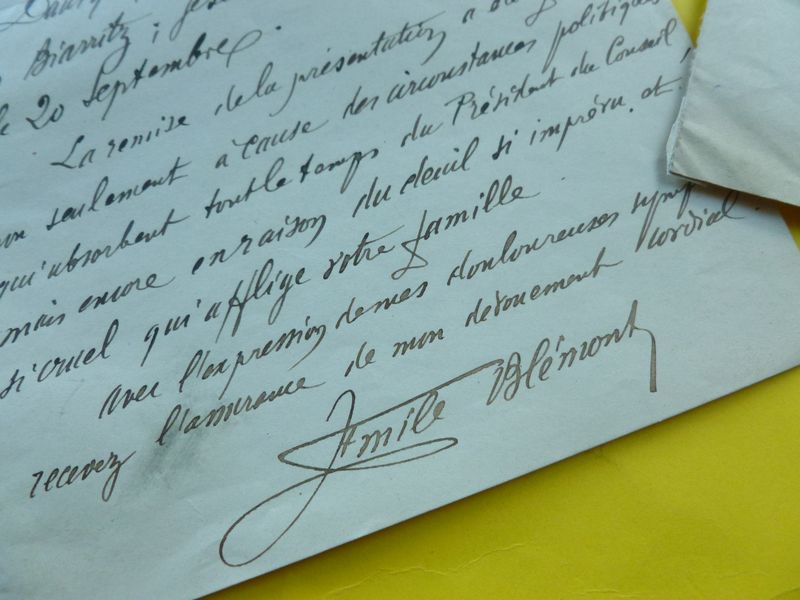 Biarritz ; je
le 20 Septembre.
La remise de la présentation a
non seulement à cause des circonstances politiques
qu'absorbent tout le temps du Président du Conseil
mais encore en raison du deuil si imprévu et
si cruel qui afflige votre famille.
avec l'expression de mes douloureuses symp
recevez l'assurance de mon dévouement cordial.
Emile Blémont